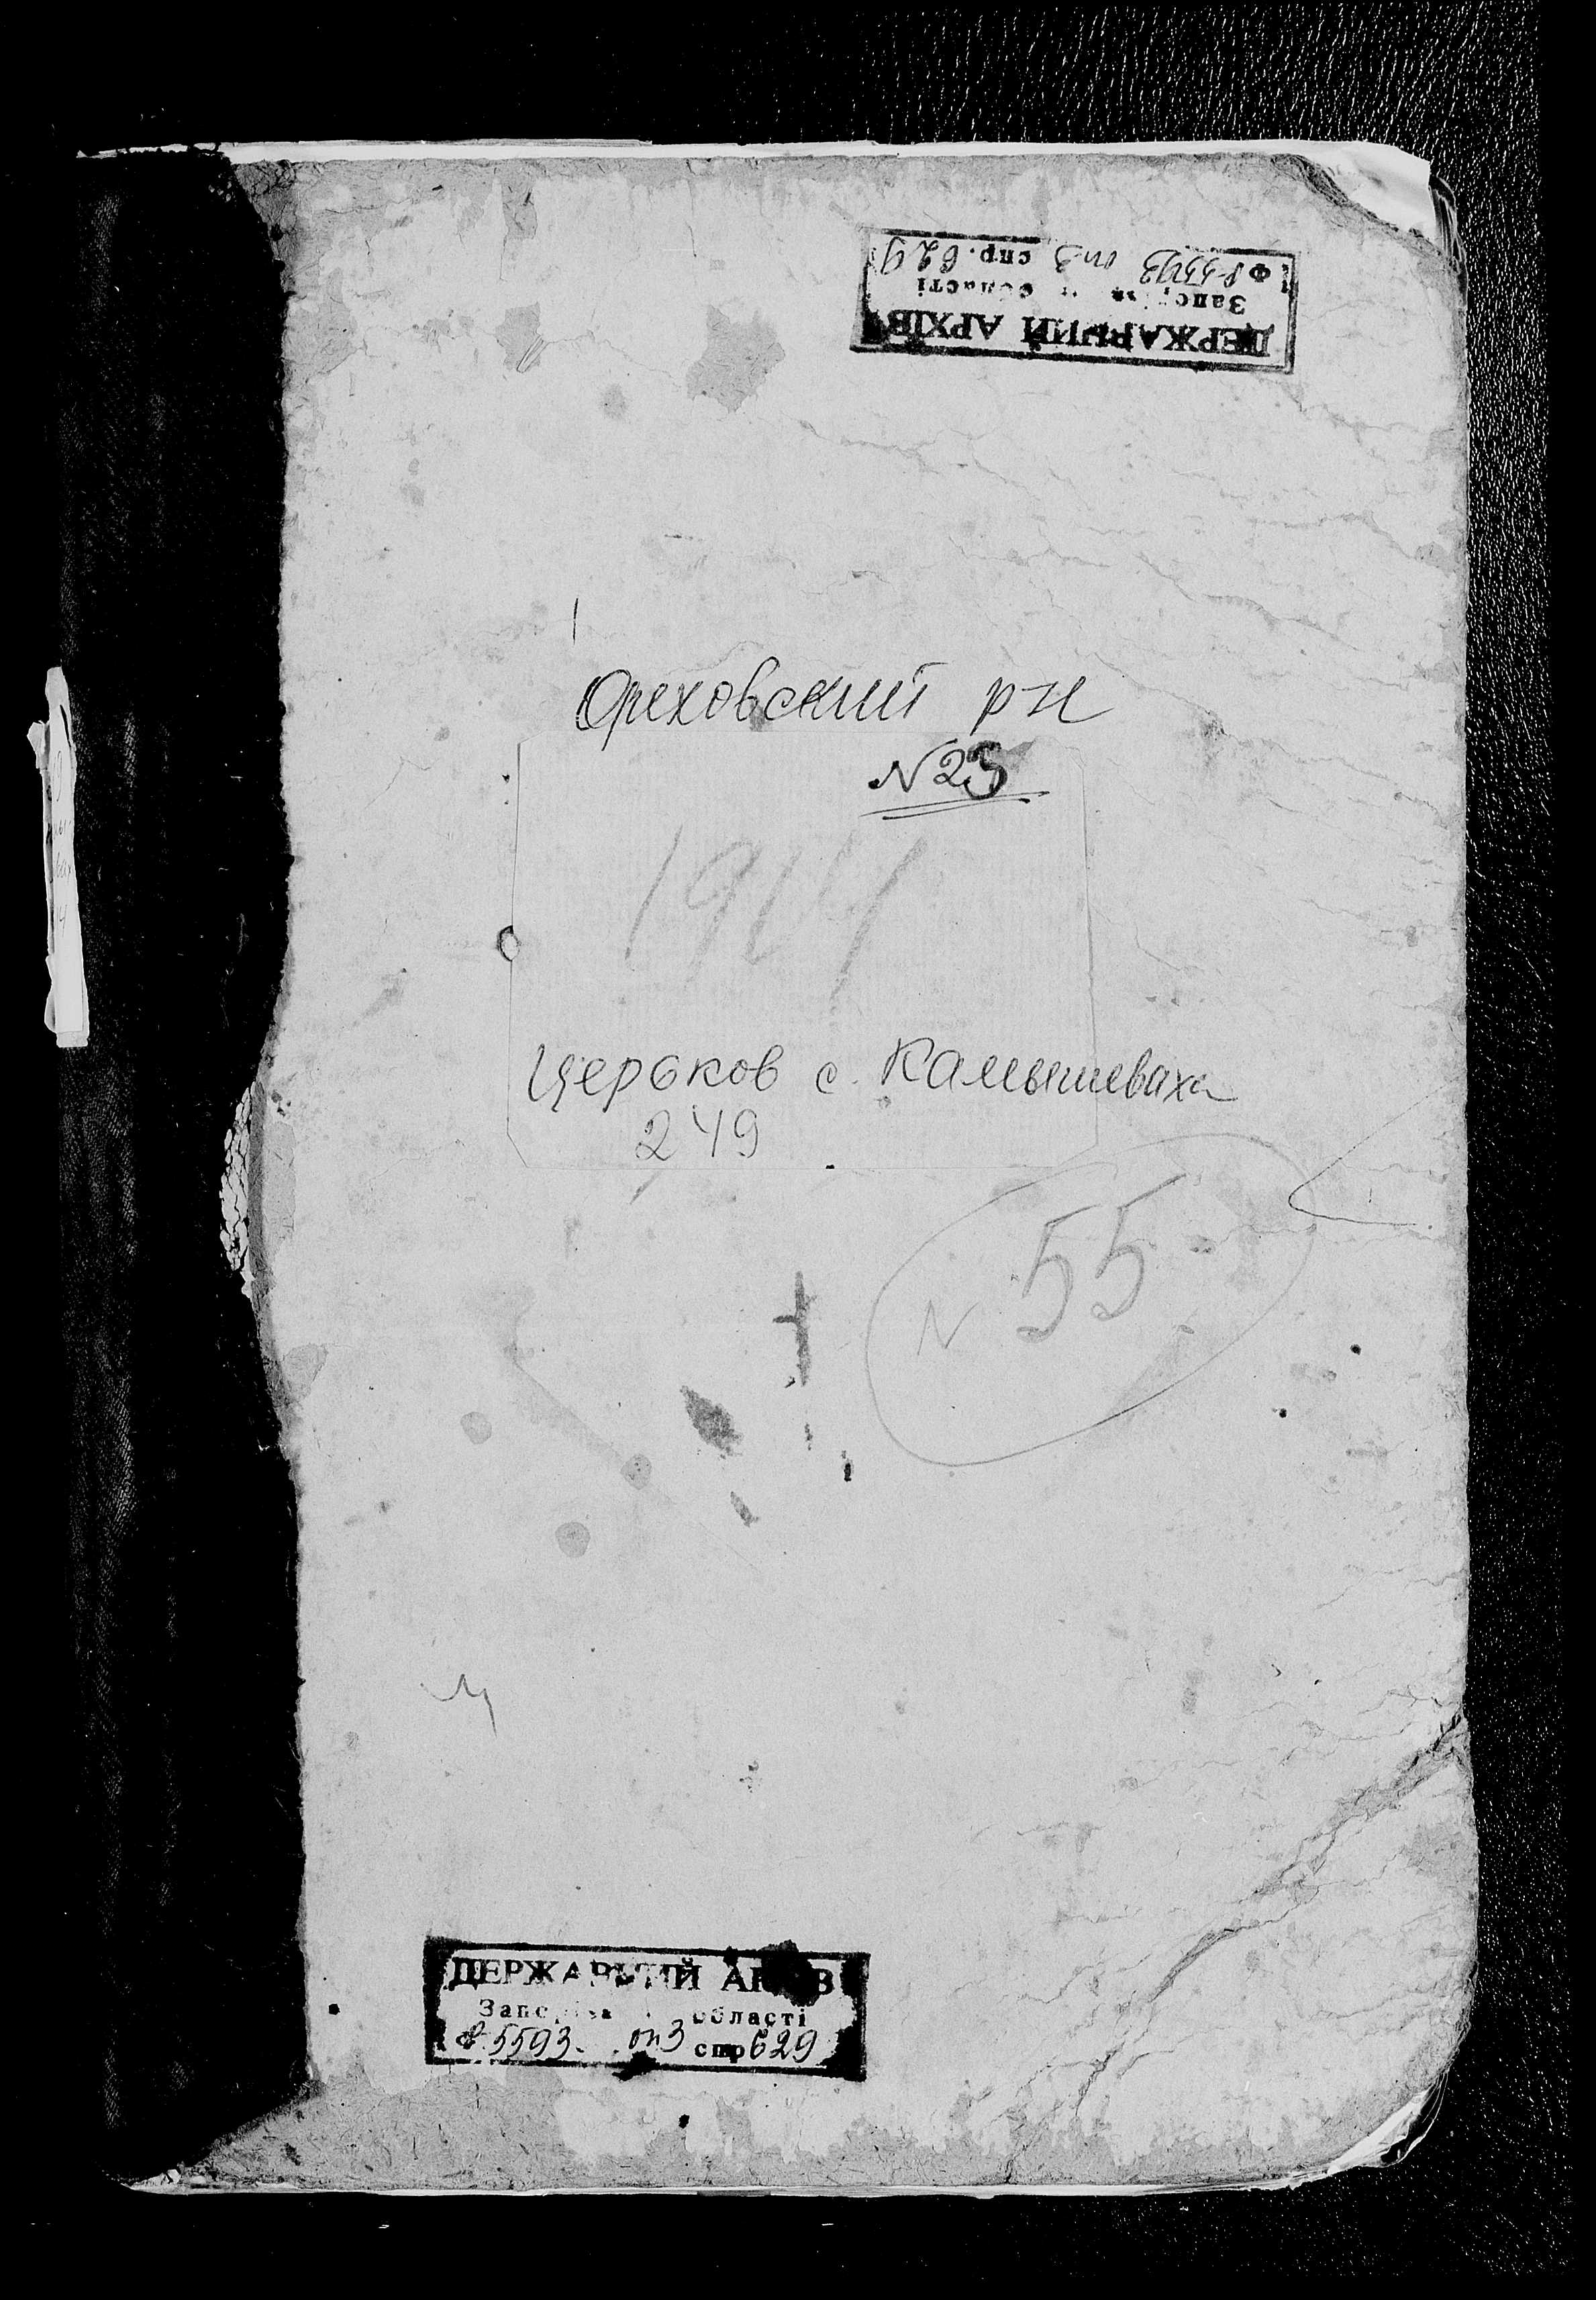 ДЕРЖАВНИЙ АРХІВ
області
Ф Р-5593 оп 3 спр. 629
Ореховский р-н
N 25
1914
Церьков с. Камышеваха
249
N 55
ДЕРЖАВНИЙ АРХІВ
області
Р-5593. оп 3 спр 629